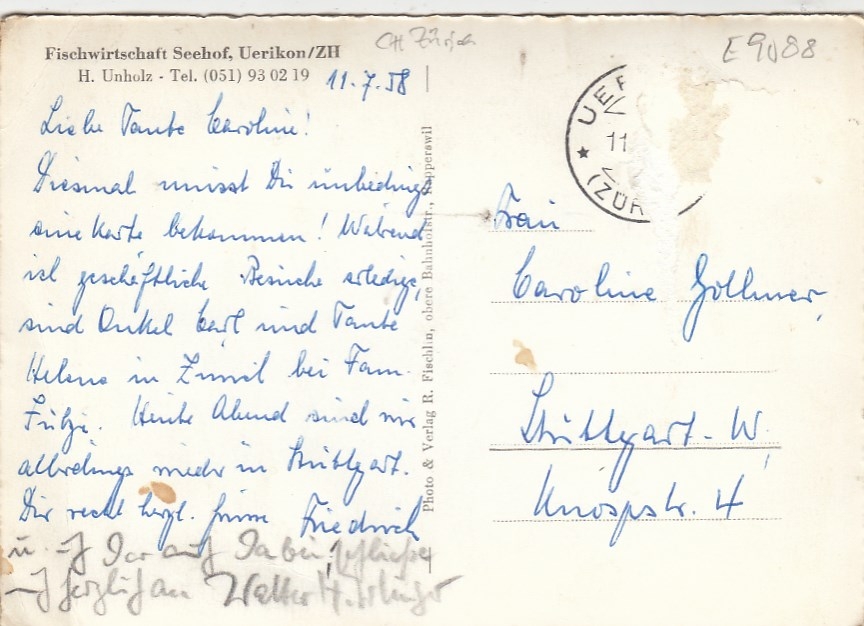 Fischwirtschaft Seehof, Uerikon/ZH
H. Unholz - Tel. (051) 93 02 19
CH Zürich
E9088
11.7.58
Liebe Tante Caroline!
Diesmal musst Du unbedingt
eine Karte bekommen! Während
ich geschäftliche Besuche erledige,
sind Onkel Carl und Tante
Helene in Zürich bei Fam.
Heute Abend sind wir
allerdings wieder in Stuttgart.
Dir recht herzl. Grüsse Friedrich
u. ich bin auch dabei, schliesse
mich herzlich an Walter
Photo & Verlag R. Fischlin, obere Bahnhofstr., Rapperswil
UER
11
(ZÜR
Frau
Caroline Gollmer,
Stuttgart-W.
Knospstr. 4